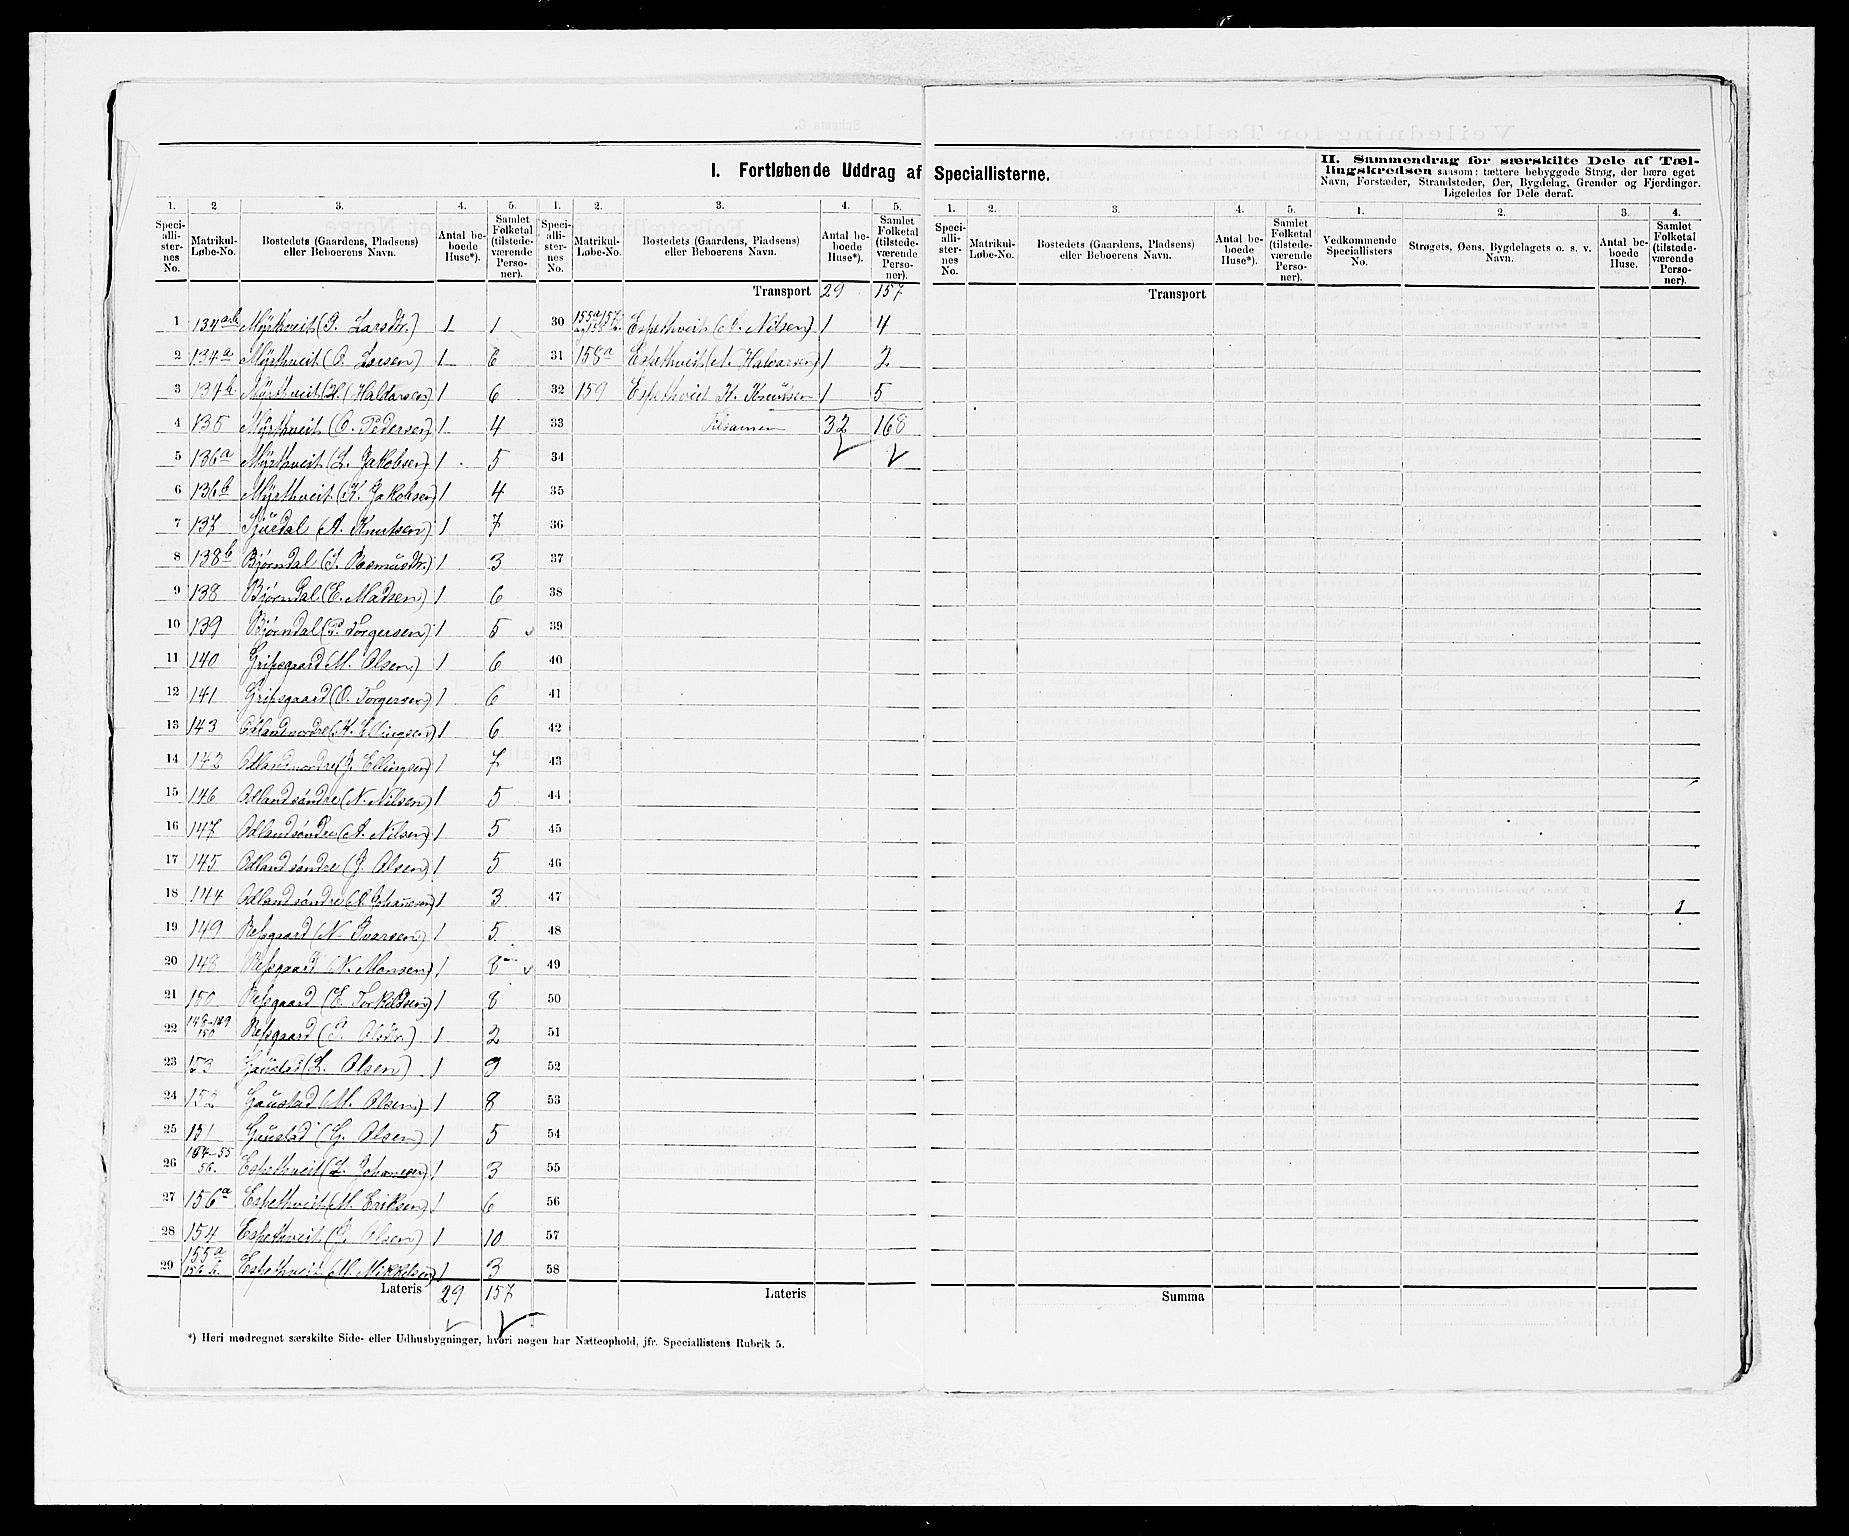 I. Fortløbende Uddrag af Speciallisterne.
II. Sammendrag for særskilte Dele af Tæl-
lingskredsen saasom: tættere bebyggede Strøg, der bære eget
Navn, Forstæder, Strandsteder, Øer, Bygdelag, Grender og Fjerdinger.
Ligeledes for Dele deraf.
1. Speci-alli-ster-nes No. 2 Matrikul-Løbe-No. 3. Bostedets (Gaardens, Pladsens) eller Beboerens Navn. 4. Antal be-boede Huse*). 5. Samlet Folketal (tilstede-værende Perso-ner).
1. Speci-alli-ster-nes No. 2. Matrikul-Løbe-No. 3. Bostedets (Gaardens, Pladsens) eller Beboerens Navn. 4. Antal be-boede Huse*). 5. Samlet Folketal (tilstede-værende Perso-ner).
1. Speci-alli-ster-nes No. 2. Matrikul-Løbe-No. 3. Bostedets (Gaardens, Pladsens) eller Beboerens Navn. 4. Antal be-boede Huse*). 5. Samlet Folketal (tilstede-værende Perso-ner).
1. Vedkommende Speciallisters No. 2. Strøgets, Øens, Bygdelagets o. s. v. Navn. 3. Antal be-boede Huse. 4. Samlet Folketal (tilstede-værende Perso-ner).
1 134ab Myrthveit (P. Larsdtr.) 1 1
2 134a Myrthveit (O. Larsen) 1 6
3 134b Myrthveit (H. Haldorsen) 1 6
4 135 Myrthveit (O. Pedersen) 1 4
5 136a Myrthveit (L. Jakobsen) 1 5
6 136b Myrthveit (K. Jakobsen) 1 4
7 137 (A. Knutsen) 1 7
8 138b Bjørndal (I. Rasmusdtr.) 1 3
9 138 Bjørndal (E. Madsen) 1 6
10 139 Bjørndal (P. Torgersen) 1 5
11 140 Gripsgaard (M. Olsen) 1 6
12 141 Gripsgaard (O. Torgersen) 1 6
13 143 Odland nordre (K. Ellingsen) 1 6
14 142 Odland nordre (J. Ellingsen) 1 7
15 146 Odland søndre (N. Nilsen) 1 5
16 147 Odland søndre (A. Nilsen) 1 5
17 145 Odland søndre (J. Olsen) 1 5
18 144 Odland søndre (A. Johannesen) 1 3
19 149 Refsgaard (N. Ivarsen) 1 5
20 148 Refsgaard (N. Monsen) 1 8
21 150 Refsgaard (E. Torkildsen) 1 8
22 148-149 150 Refsgaard (P. Olsdtr.) 1 2
23 153 Gaustad (L. Olsen) 1 9
24 152 Gaustad (M. Olsen) 1 8
25 151 Gaustad (G. Olsen) 1 5
26 154-55 56. Espethveit (L. Johannesen) 1 3
27 156a Espethveit (M. Eriksen) 1 6
28 154 Espethveit (J. Olsen) 1 10
29 155a 156 b. Espethveit (M. Mikkelsen) 1 3
Lateris 29 157
Transport 29 157
30 Espethveit (N. Nilsen) 1 4
31 158a Espethveit (A. Halvorsen) 1 2
32 159 Espethveit K. Knutsen 1 5
33 Tilsamen 32 168
34
35
36
37
38
39
40
41
42
43
44
45
46
47
48
49
50
51
52
53
54
55
56
57
58
Lateris
Transport
Summa
*) Heri medregnet særskilte Side- eller Udhusbygninger, hvori nogen har Natteophold, jfr. Speciallistens Rubrik 5.